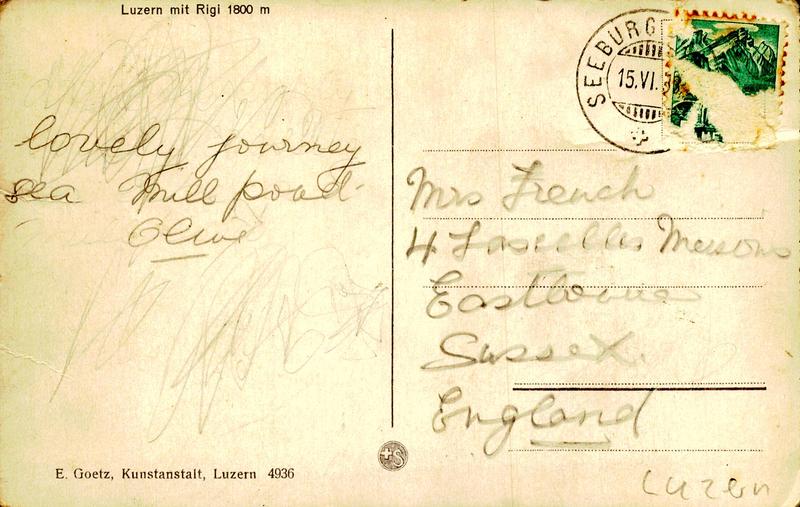 Luzern mit Rigi 1800 m
SEEBURG
15.VI.
lovely journey
sea Mill pond
Olive
Mrs French
4 Lascelles Mansions
Eastbourne
Sussex.
England
E. Goetz, Kunstanstalt, Luzern 4936
S
Luzern